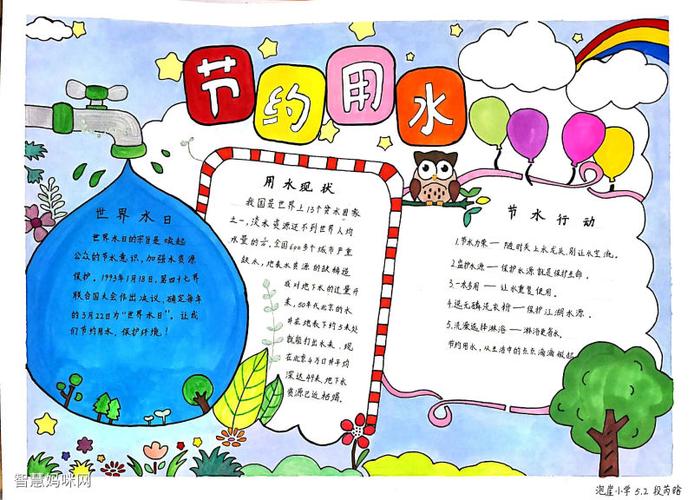 节约用水
世界水日
世界水日的宗旨是唤起
公众的节水意识，加强水资源
保护。1993年1月18日，第四十七届
联合国大会作出决议，确定每年
的3月22日为“世界水日”。让我
们节约用水、保护环境！
用水现状
我国是世界上13个贫水国家
之一，淡水资源还不到世界人均
水量的，全国600多个城市严重
缺水，地表水资源的缺稀造
成对地下水的过量开
采，50年代北京的水
井在地表下约5米处
就能打出水来，现
在北京4万口井平均
深达49米，地下水
资源已近枯竭。
节水行动
1.节水力举——随时关上水龙头，别让水空流。
2.监护水源——保护水源就是保护生命。
3.一水多用——让水重复使用。
4.选无磷洗衣粉——保护江湖水源。
5.洗澡选择淋浴——淋浴更省水。
节约用水，从生活中的点点滴滴做起
智慧妈咪网
小学5.2段芮